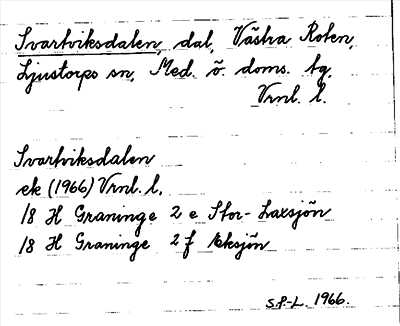 Svartviksdalen, dal, Västra Roten,
Ljustorps sn, Med. ö. doms. tg,
Vrnl. l.
Svartviksdalen
ek (1966) Vrnl. l.
18 H Graninge 2 e Stor-Laxsjön
18 H Graninge 2 f Eksjön
S.P-L. 1966.